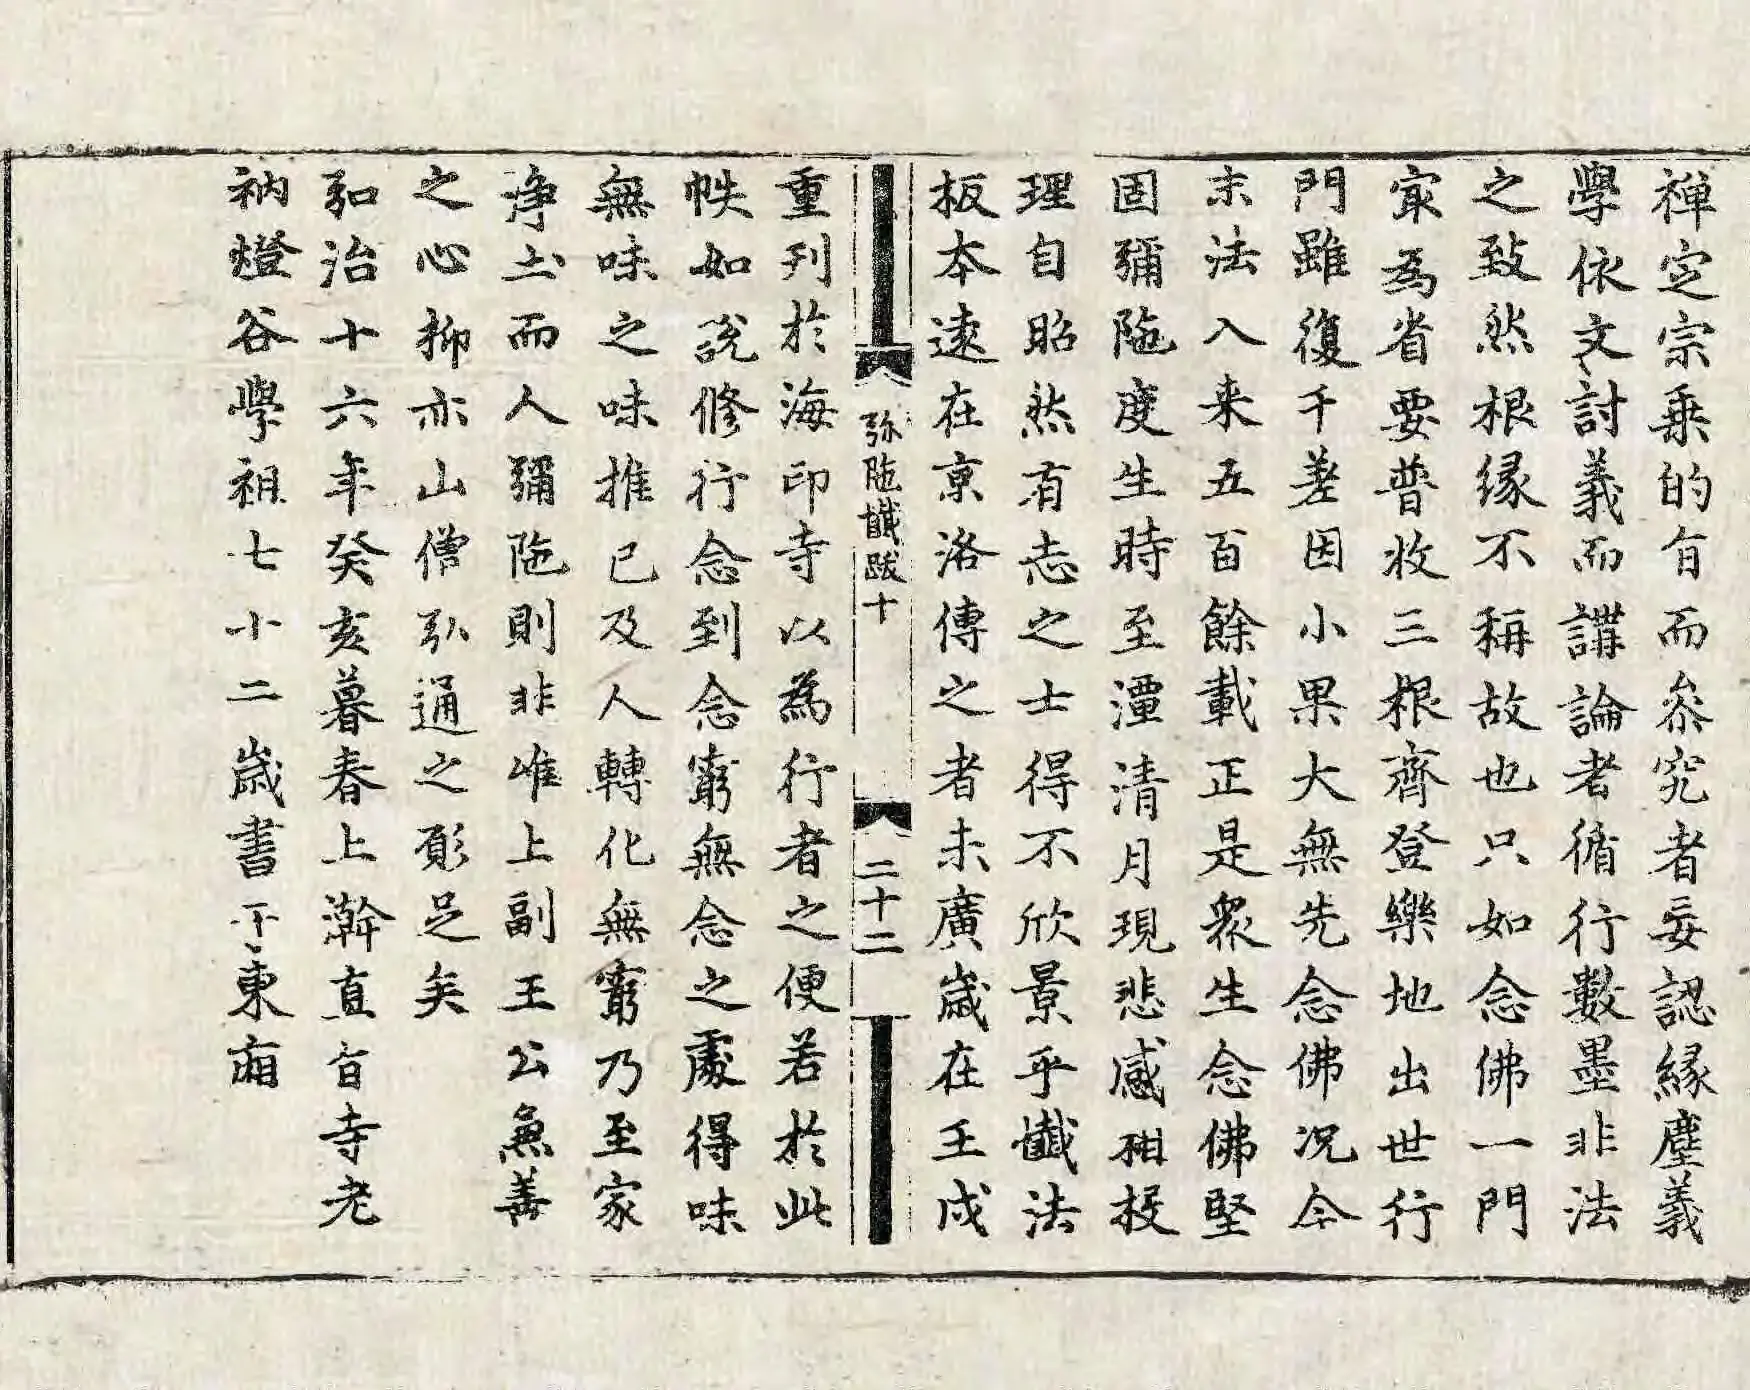 禪定宗乗的旨而叅究者妄認緣塵義
學依文討義而講論者循行數墨非法
之致然根緣不稱故也只如念佛一門
㝡為省要普收三根齊登樂地出世行
門雖復千差因小果大無先念佛况今
末法入来五百餘載正是衆生念佛堅
固彌陁度生時至潭清月現悲感相投
理自昭然有志之士得不欣景乎懺法
板本遠在京洛傳之者未廣歲在壬戌
弥陁懺跋十
二十二
重刊於海印寺以為行者之便若於此
帙如說修行念到念窮無念之處得味
無味之味推已及人轉化無窮乃至家
淨土而人彌陁則非唯上副王公兼善
之心抑亦山僧弘通之願足矣
弘治十六年癸亥暮春上澣直旨寺老
衲燈谷學祖七十二歲書于東廂